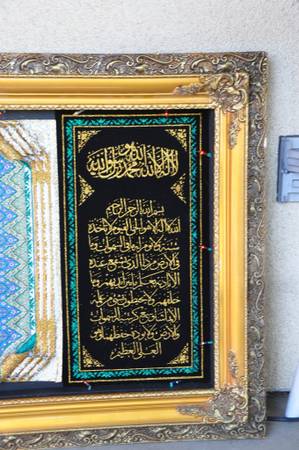 لا إله إلا الله محمد رسول الله
بسم الله الرحمن الرحيم
الله لا اله الا هو الحي القيوم لا تاخذه
سنة ولا نوم له ما في السموات وما
في الارض من ذا الذي يشفع عنده
الا باذنه يعلم ما بين ايديهم وما
خلفهم ولا يحيطون بشيء من
علمه الا بما شاء وسع كرسيه السموات
والارض ولا يوده حفظهما وهو
العلي العظيم